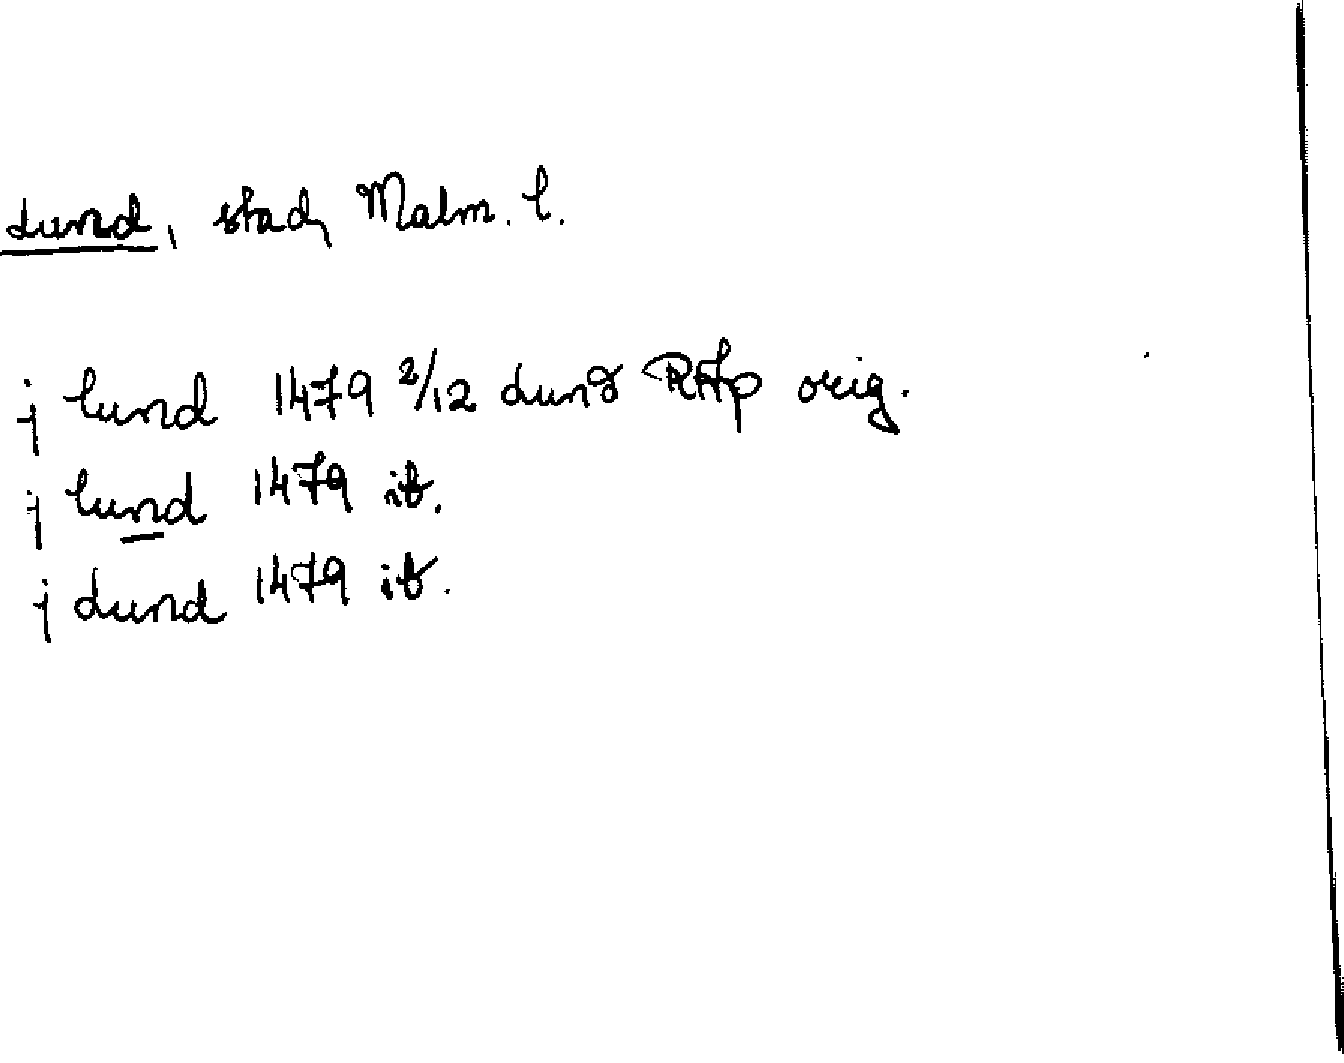 Lund, stad, Malm. l.
j lund 1479 2/12 Lund RAp orig.
j lund 1479 ib.
j Lund 1479 ib.